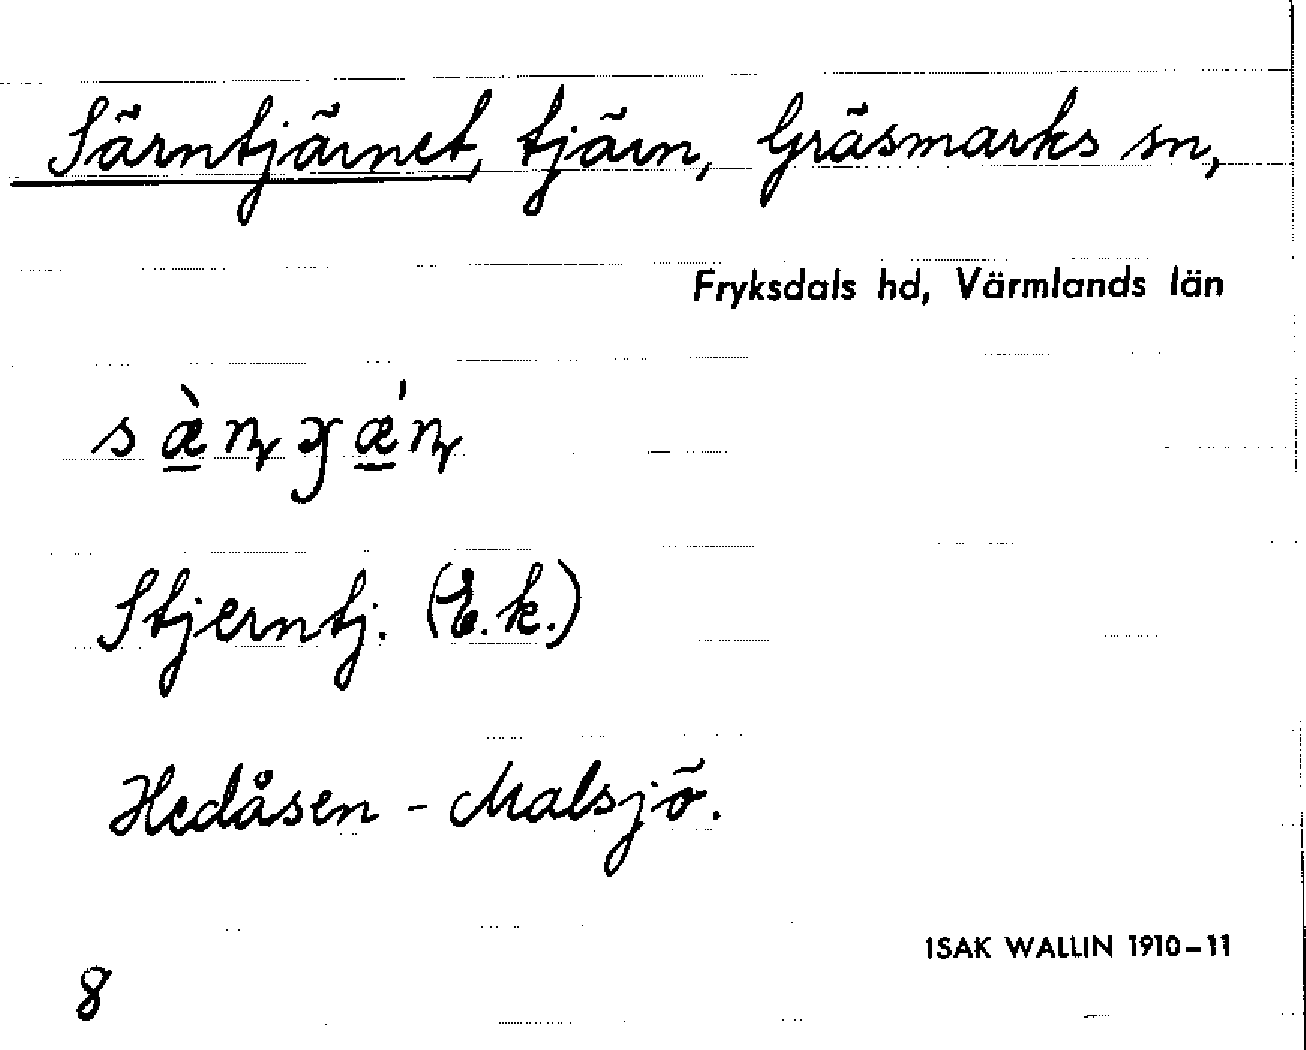 Särntjärnet, tjärn, Gräsmarks sn,
Fryksdals hd, Värmlands län
Stjerntj. (E.k.)
Hedåsen - Malsjö.
ISAK WALLIN 1910–11
8